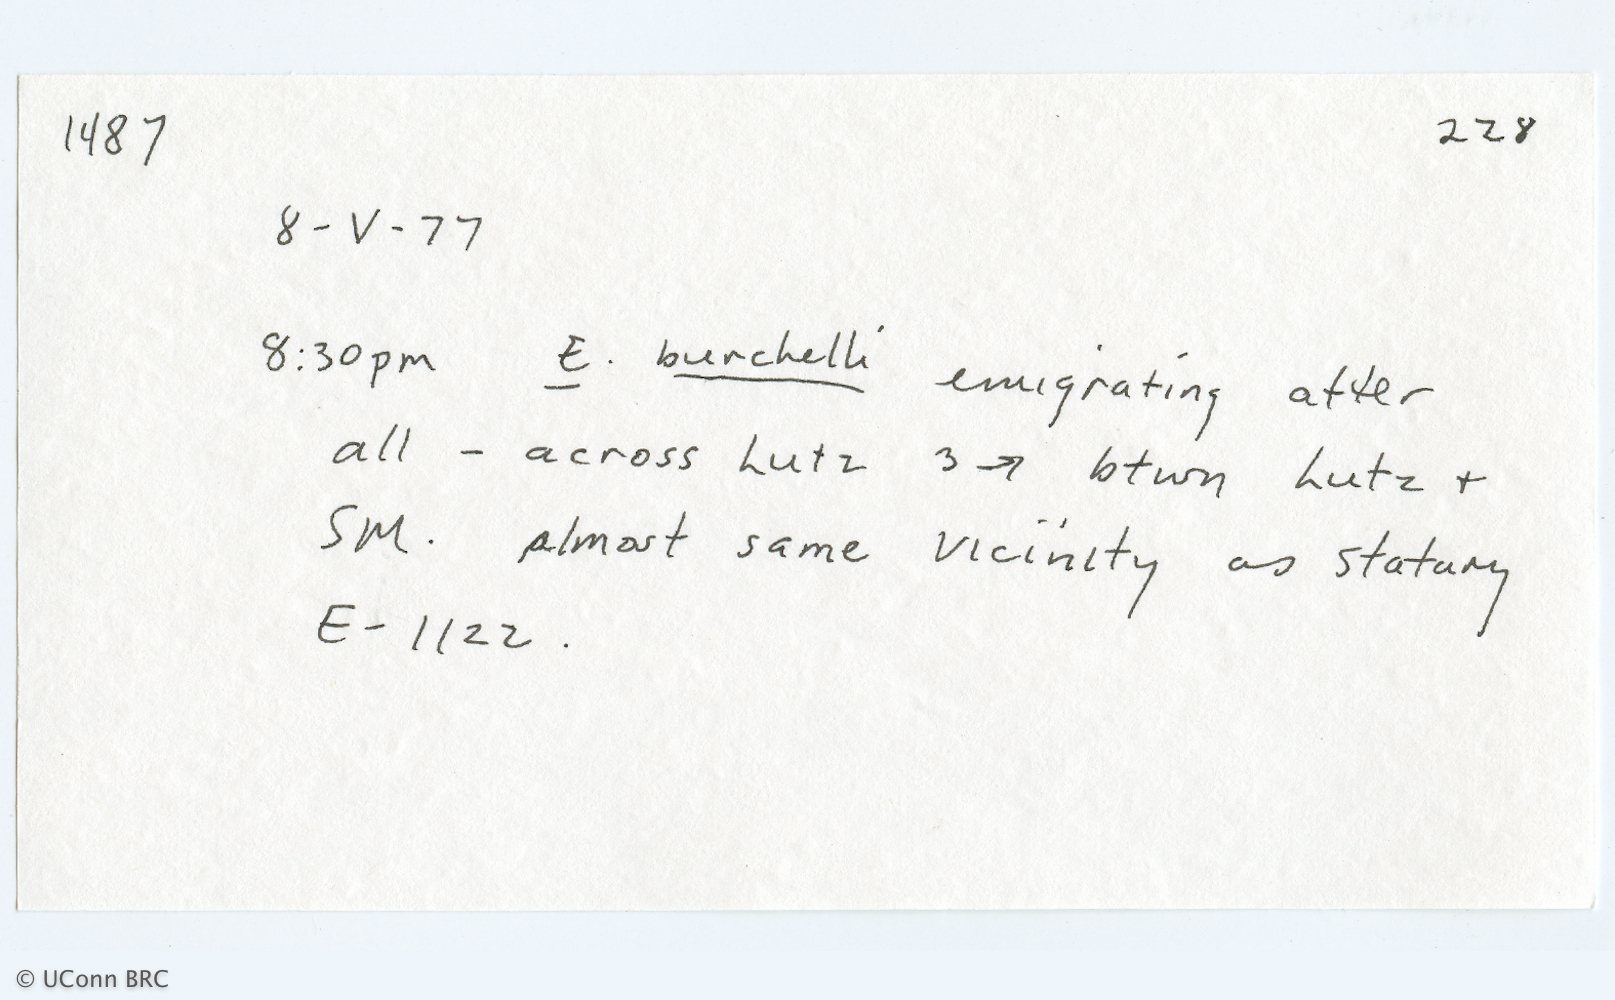 1487 228
8-V-77
8:30pm E. burchelli emigrating after
all - across Lutz 3 → btwn Lutz +
SM. almost same vicinity as statary
E-1122.
© UConn BRC